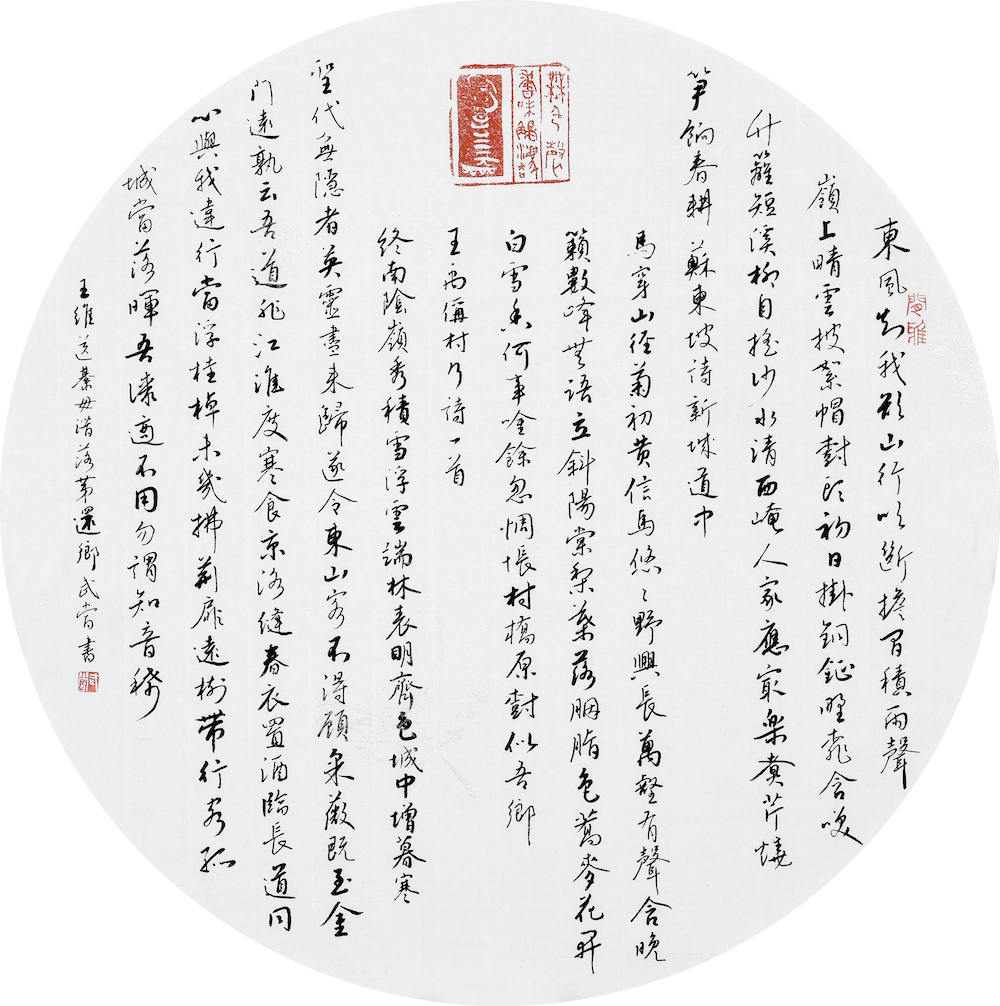 東風知我欲山行吹斷檐間積雨聲
嶺上晴雲披絮帽樹頭初日掛銅鉦野桃含笑
竹籬短溪柳自搖沙水清西崦人家應最樂煮芹燒
筍餉春耕 蘇東坡詩新城道中
馬穿山徑菊初黄信馬悠々野興長萬壑有聲含晚
籟數峰無語立斜陽棠梨葉落胭脂色蕎麥花開
白雪香何事吟餘忽惆悵村橋原樹似吾鄉
王禹偁村行詩一首
終南陰嶺秀積雪浮雲端林表明霽色城中增暮寒
聖代無隱者英靈盡來歸遂令東山客不得顧采薇既至金
門遠孰云吾道非江淮度寒食京洛縫春衣置酒臨長道同
心與我違行當浮桂棹未幾拂荊扉遠樹帶行客孤
城當落暉吾謀適不用勿謂知音稀
王維送綦毋潛落第還鄉武當書